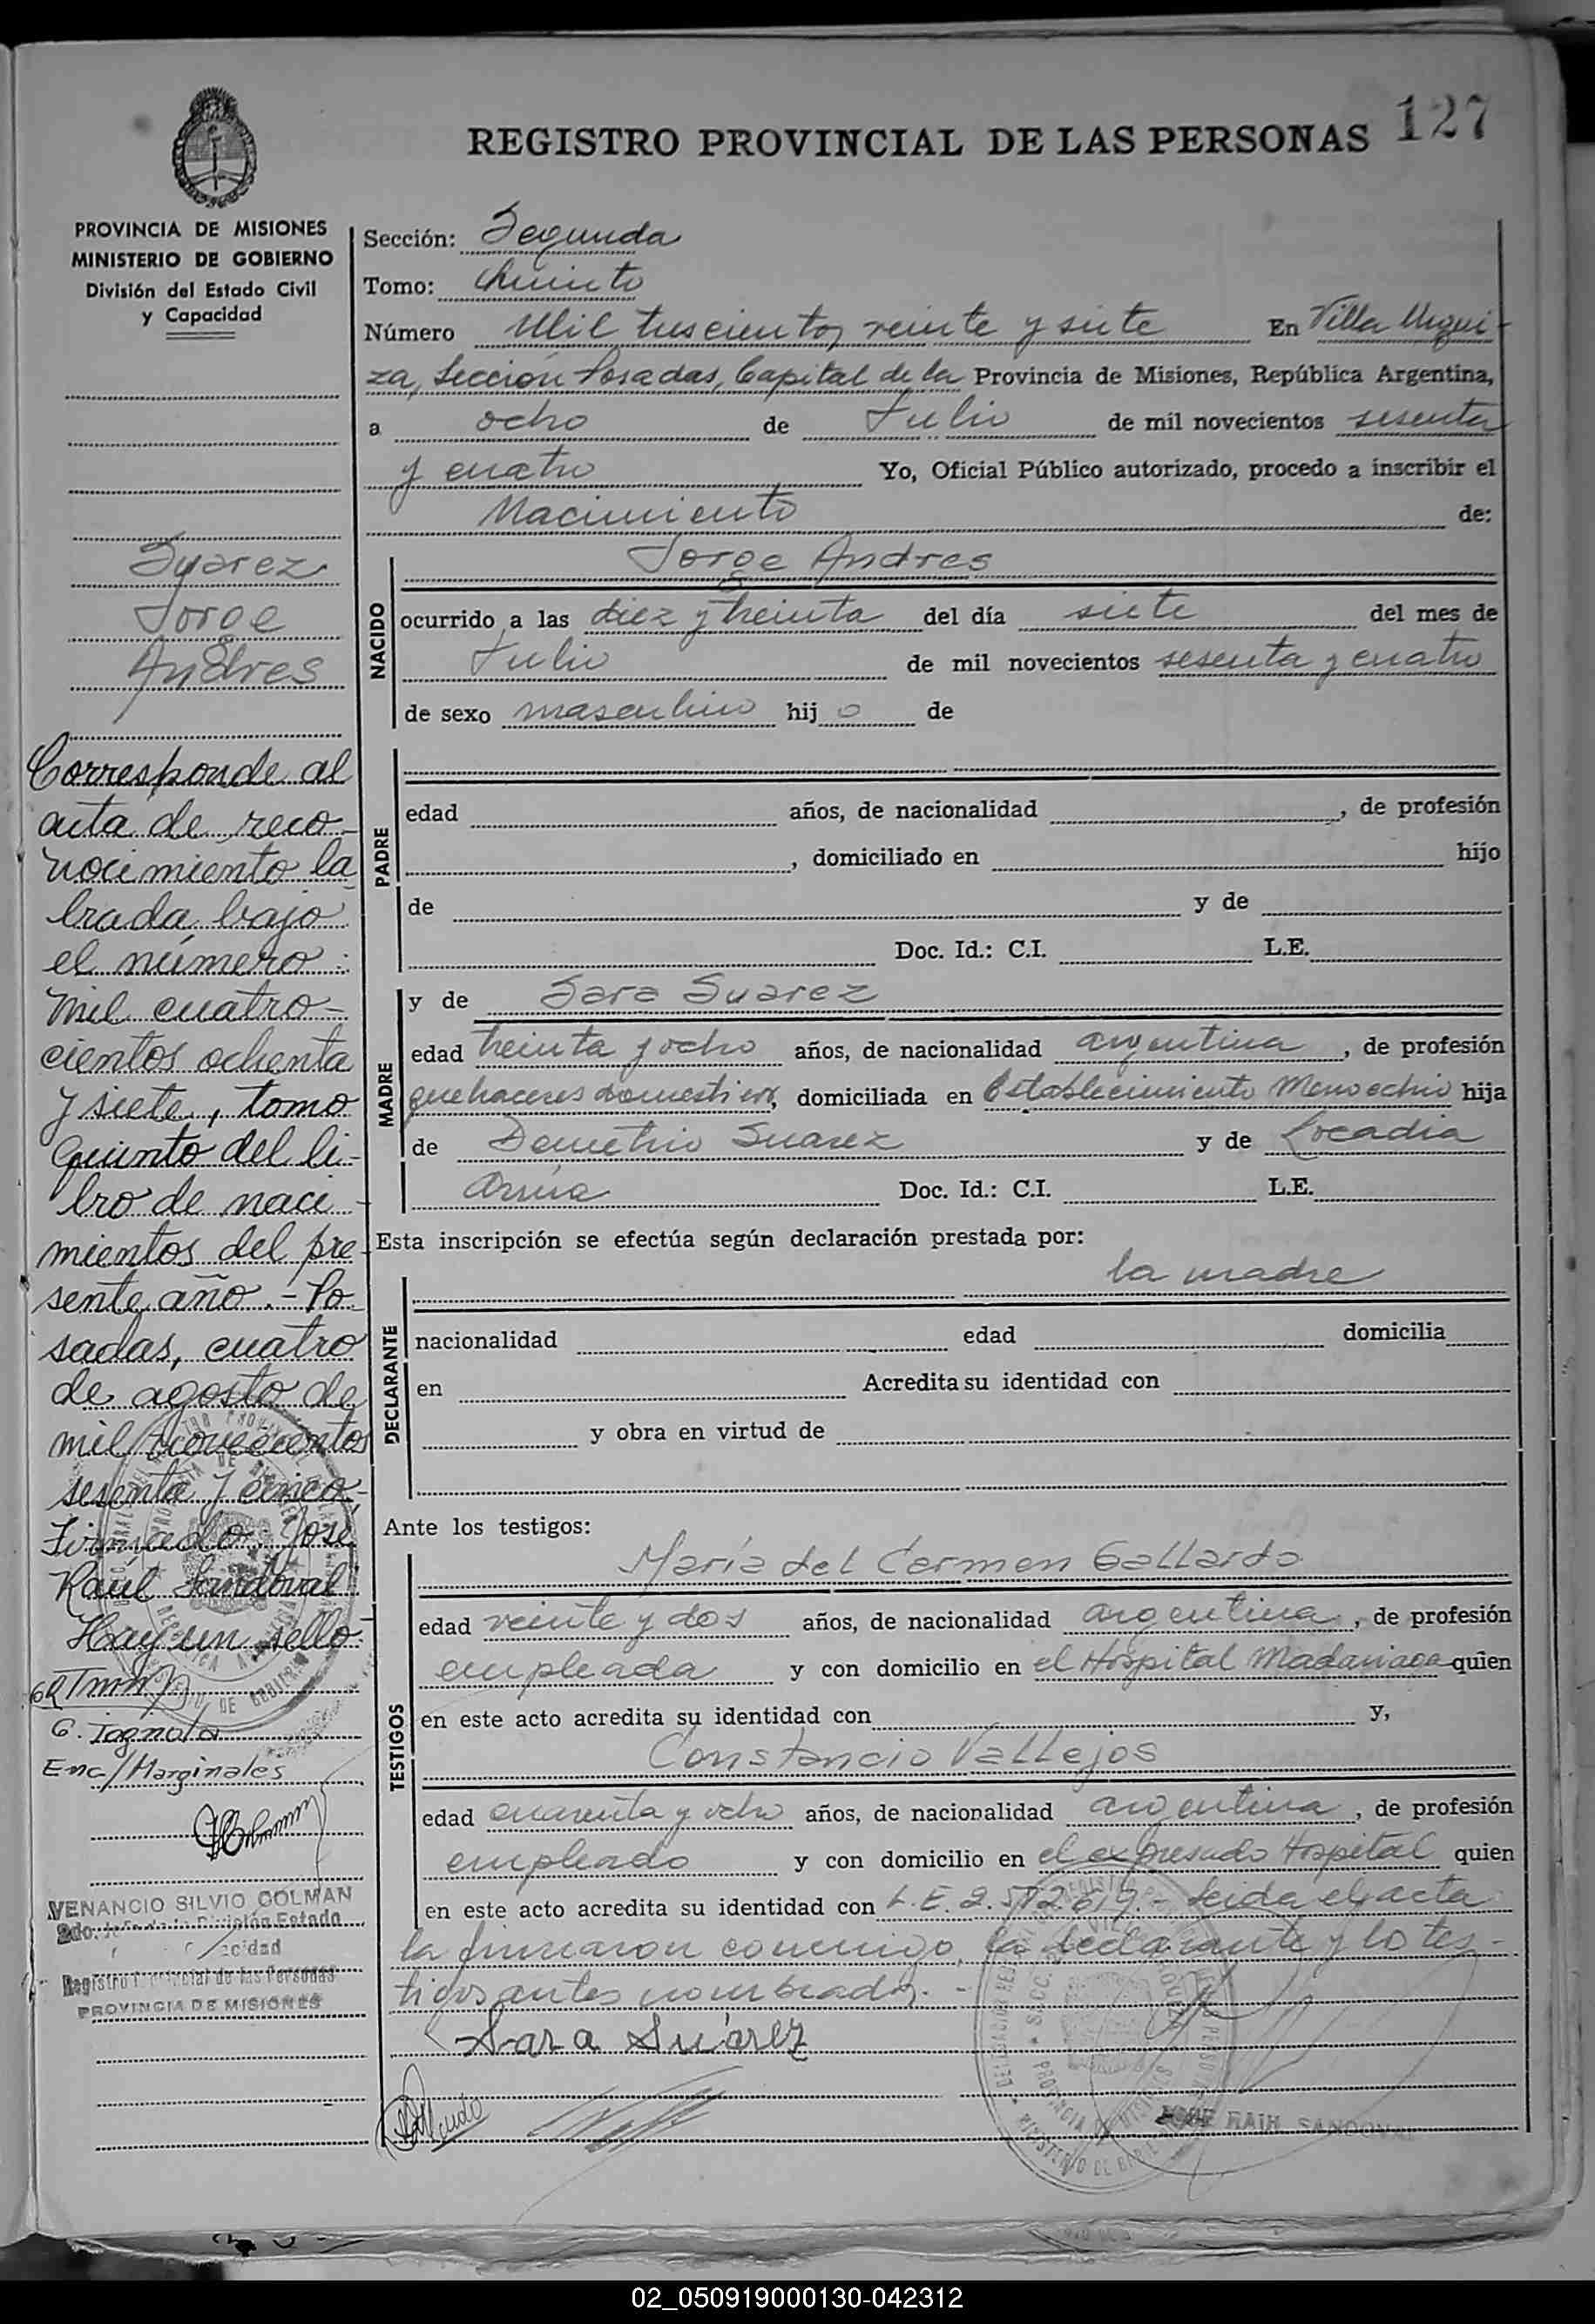 127
REGISTRO PROVINCIAL DE LAS PERSONAS
PROVINCIA DE MISIONES
MINISTERIO DE GOBIERNO
División del Estado Civil
y Capacidad
Suarez
Jorge
Andres
Corresponde al
acta de reco-
nocimiento la-
brada bajo
el número:
mil cuatro-
cientos ochenta
y siete, tomo
Quinto del li-
bro de naci-
mientos del pre-
sente año.- Po-
sadas, cuatro
de agosto de
mil novecientos
sesenta y cinco.
Firmado: José
Raúl Sandoval
Hay un sello.
G. Tognola
Enc/Marginales
VENANCIO SILVIO COLMAN
2do. Jefe de la División Estado
Registro Provincial de las Personas
PROVINCIA DE MISIONES
Sección: Segunda
Tomo: Quinto
Número Mil trescientos veinte y siete En Villa Urqui-
za, Sección Posadas, Capital de la Provincia de Misiones, República Argentina,
a ocho de Julio de mil novecientos sesenta
y cuatro Yo, Oficial Público autorizado, procedo a inscribir el
Nacimiento de:
NACIDO
Jorge Andres
ocurrido a las diez y treinta del día siete del mes de
Julio de mil novecientos sesenta y cuatro
de sexo masculino hijo de
PADRE
edad años, de nacionalidad , de profesión
, domiciliado en hijo
de y de
Doc. Id.: C.I. L.E.
MADRE
y de Sara Suarez
edad treinta y ocho años, de nacionalidad argentina , de profesión
quehaceres domesticos, domiciliada en Establecimiento Menocchio hija
de Demetrio Suarez y de Locadia
Doc. Id.: C.I. L.E.
Esta inscripción se efectúa según declaración prestada por:
DECLARANTE
la madre
nacionalidad edad domicilia
en Acredita su identidad con
y obra en virtud de
Ante los testigos:
TESTIGOS
María del Carmen Gallardo
edad veinte y dos años, de nacionalidad argentina , de profesión
empleada y con domicilio en el Hospital Madariaga quien
en este acto acredita su identidad con y,
Constancio Vallejos
edad cuarenta y ocho años, de nacionalidad argentina , de profesión
empleado y con domicilio en el expresado Hospital quien
en este acto acredita su identidad con L.E. Leida el acta
la firmaron conmigo la declarante y los tes-
tigos antes nombrados.-
Sara Suárez
JOSE RAUL SANDOVAL
02_050919000130-042312